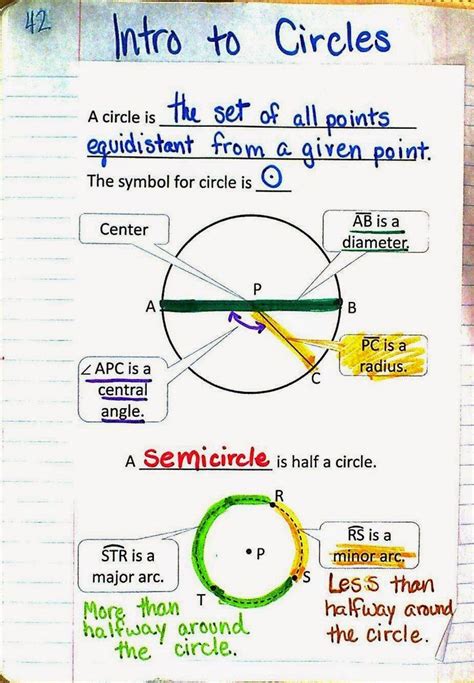 42
Intro to Circles
A circle is the set of all points
equidistant from a given point.
The symbol for circle is ⊙
Center
AB is a
diameter.
P
A
B
PC is a
radius.
C
∠ APC is a
central
angle.
A semicircle is half a circle.
R
STR is a
major arc.
P
RS is a
minor arc.
S
T
More than
halfway around
the circle.
Less than
halfway around
the circle.